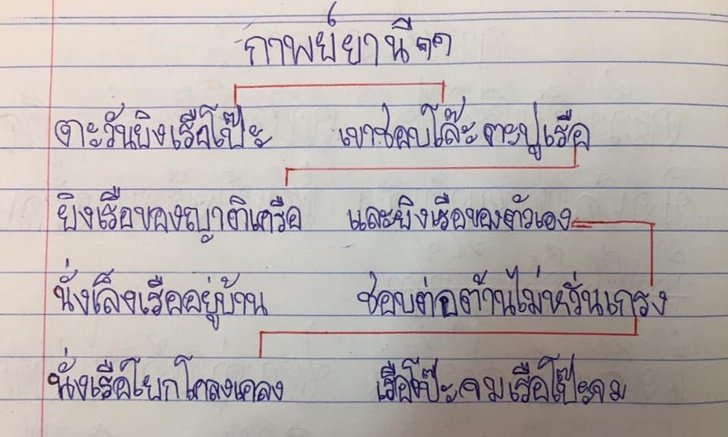 กาพย์ยานี๑๑
ตะวันยิงเรือโป๊ะ เขาชอบโล๊ะตะปูเรือ
ยิงเรือของญาติเครือ และยิงเรือของตัวเอง
นั่งเล็งเรืออยู่บ้าน ชอบต่อต้านไม่หวั่นเกรง
นั่งเรือโยกโคลงเคลง เรือโป๊ะจมเรือโป๊ะจม